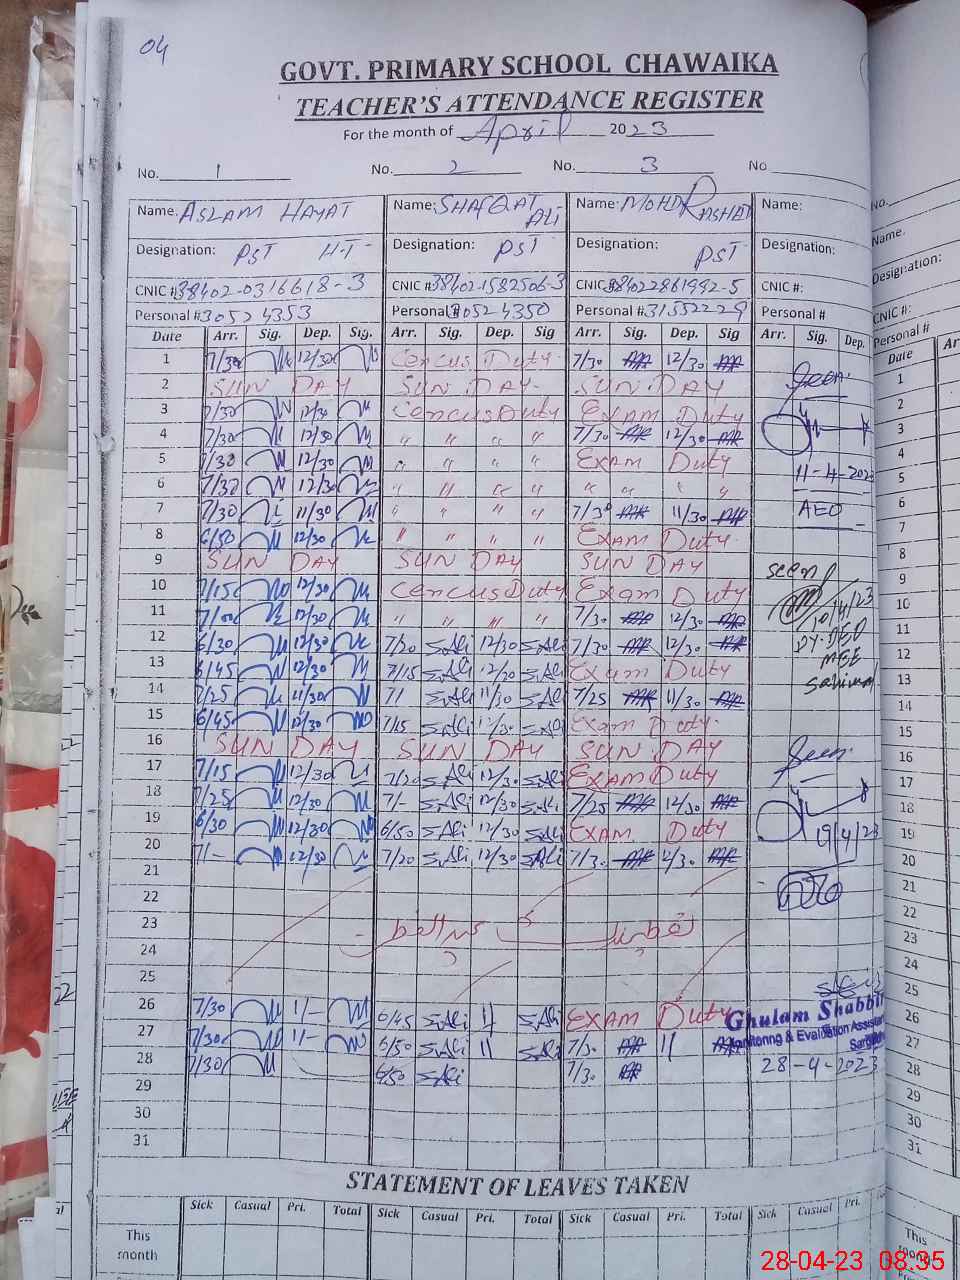 04
GOVT. PRIMARY SCHOOL CHAWAIKA
TEACHER'S ATTENDANCE REGISTER
For the month of April 2023
No. 1 No. 2 No. 3 No
Name: ASLAM HAYAT Name: SHAFQAT ALI Name: MOHD RASHAD Name:
Designation: PST H.T Designation: PST Designation: PST Designation:
CNIC # 38402-0316618-3 CNIC # 38402-1582506-3 CNIC 384022861992-5 CNIC #:
Personal # 30524353 Personal # 30524350 Personal # 31552229 Personal #
Date Arr. Sig. Dep. Sig. Arr. Sig. Dep. Sig Arr. Sig. Dep. Sig. Arr. Sig. Dep.
1 7/30 12/30 Cencus Duty 7/30 12/30
2 SUN DAY SUN DAY SUN DAY
3 7/30 12/30 Cencus Duty Exam Duty
4 7/30 12/30 " " " " 7/30 12/30
5 7/30 12/30 " " " " Exam Duty
6 7/30 12/30 " " " " " " " "
7 7/30 11/30 " " " " 7/30 11/30
8 6/50 12/30 " " " " Exam Duty
9 SUN DAY SUN DAY SUN DAY
10 7/15 12/30 Cencus Duty Exam Duty
11 7/00 12/30 " " " " 7/30 12/30
12 6/30 12/30 7/20 Ali 12/30 Ali 7/30 12/30
13 6/45 12/30 7/15 Ali 12/30 Ali Exam Duty
14 7/25 11/30 7/ Ali 11/30 Ali 7/25 11/30
15 6/45 12/30 7/15 Ali 12/30 Ali Exam Duty
16 SUN DAY SUN DAY SUN DAY
17 7/15 12/30 7/20 Ali 12/30 Ali Exam Duty
18 7/25 12/30 7/- Ali 12/30 Ali 7/25 12/30
19 6/30 12/30 6/50 Ali 12/30 Ali Exam Duty
20 7/- 12/30 7/20 Ali 12/30 Ali 7/30 12/30
21
22
23
24
25
26 7/30 1/- 6/45 Ali 11 Ali Exam Duty
27 7/30 1/- 6/50 Ali 11 Ali 7/30 11
28 7/30 6/50 Ali 7/30
29
30
31
Seen
11-4-2023
AEO
seen
10/4/23
DY. DEO
MEE
Sahiwal
Seen
19/4/23
Ghulam Shabbir
Monitoring & Evaluation Assistant
28-4-2023
STATEMENT OF LEAVES TAKEN
Sick Casual Pri. Total Sick Casual Pri. Total Sick Casual Pri. Total Sick Casual Pri.
This month
No.
Name.
Designation:
CNIC #:
Personal #
Date Ar
1
2
3
4
5
6
7
8
9
10
11
12
13
14
15
16
17
18
19
20
21
22
23
24
25
26
27
28
29
30
31
This month
28-04-23 08:35